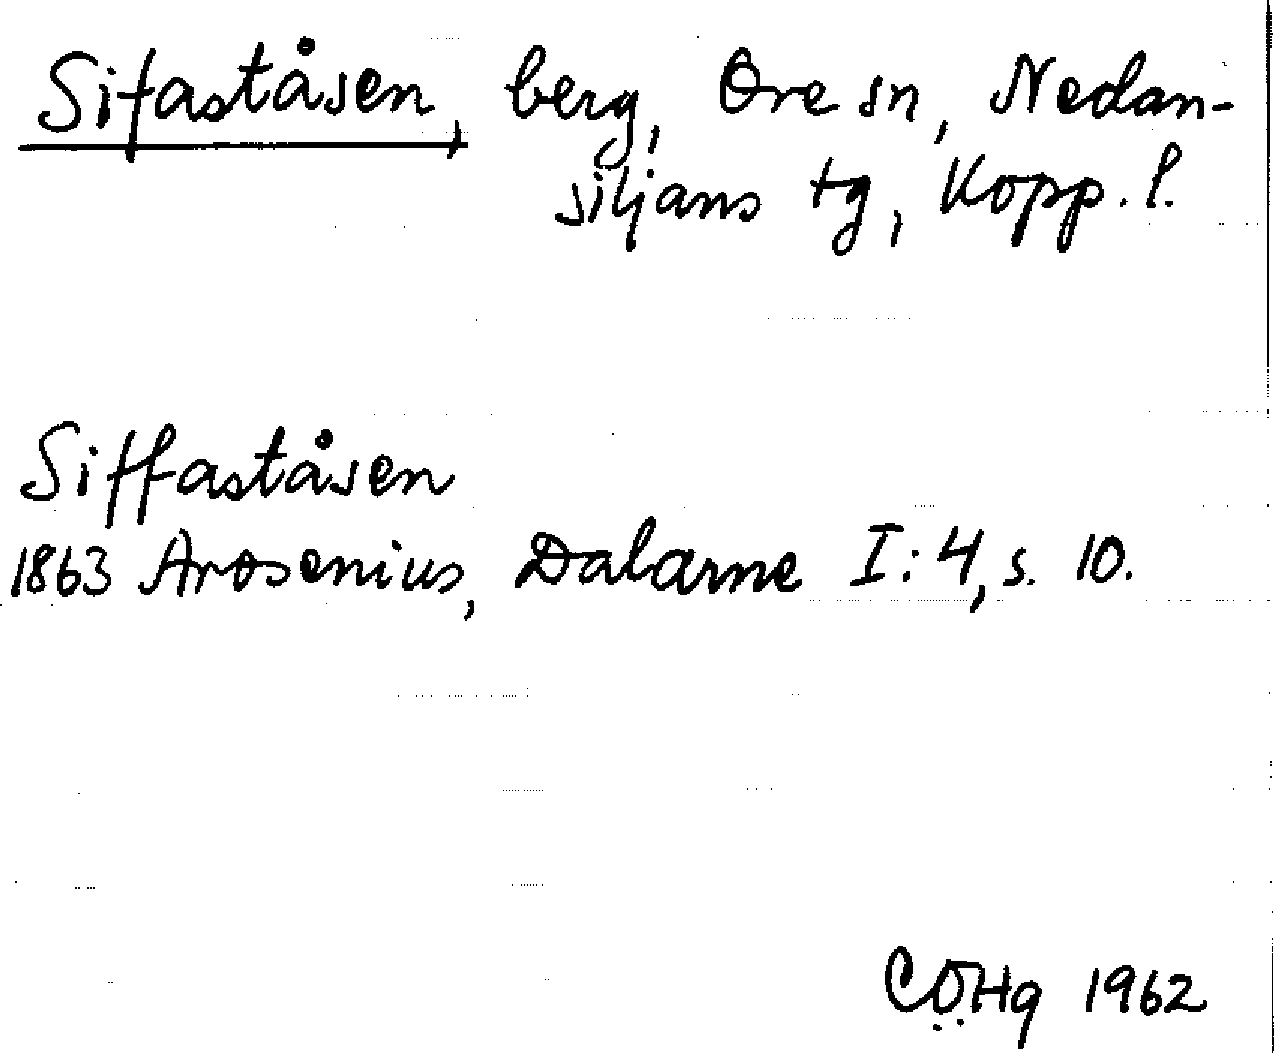 Sifaståsen, berg, Ore sn, Nedan-
siljans tg, Kopp. l.
Siffaståsen
1863 Arosenius, Dalarne I:4, s. 10.
CÖHg 1962